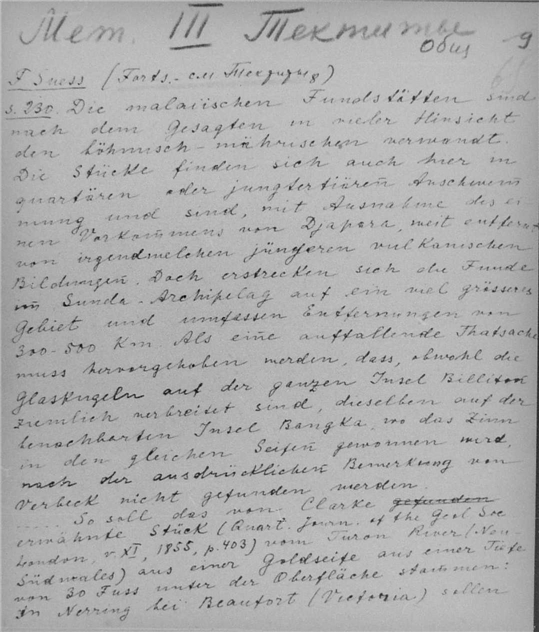 Мет. III Тектиты
Общ 9
F Suess (Forts. - см Тектиты)
s. 230. Die malaiischen Fundstätten sind
nach dem Gesagten in vieler Hinsicht
den böhmisch-mährischen verwandt.
Die Stücke finden sich auch hier in
quartären oder jungtertiären Anschwem
mung und sind, mit Ausnahme des ei
nen Vorkommens von Djapara, weit entfernt
von irgendwelchen jüngeren vulkanischen
Bildungen. Doch erstrecken sich die Funde
im Sunda-Archipelag auf ein viel grösseres
Gebiet und umfassen Entfernungen von
300-500 Km. Als eine auffallende Thatsache
muss hervorgehoben werden, dass, obwohl die
Glaskugeln auf der ganzen Insel Billiton
ziemlich verbreitet sind, dieselben auf der
benachbarten Insel Bangka, wo das Zinn
in den gleichen Seifen gewonnen wird,
nach der ausdrücklichen Bemerkung von
Verbeck nicht gefunden werden.
..... So soll das von Clarke gefunden
erwähnte Stück (Quart. Journ. of the Geol Soc
London, v. XI, 1855, p. 403) vom Turon River (Neu-
Südwales) aus einer Goldseife aus einer Tiefe
von 30 Fuss unter der Oberfläche stammen:
In Nerring bei Beaufort (Victoria) sollen